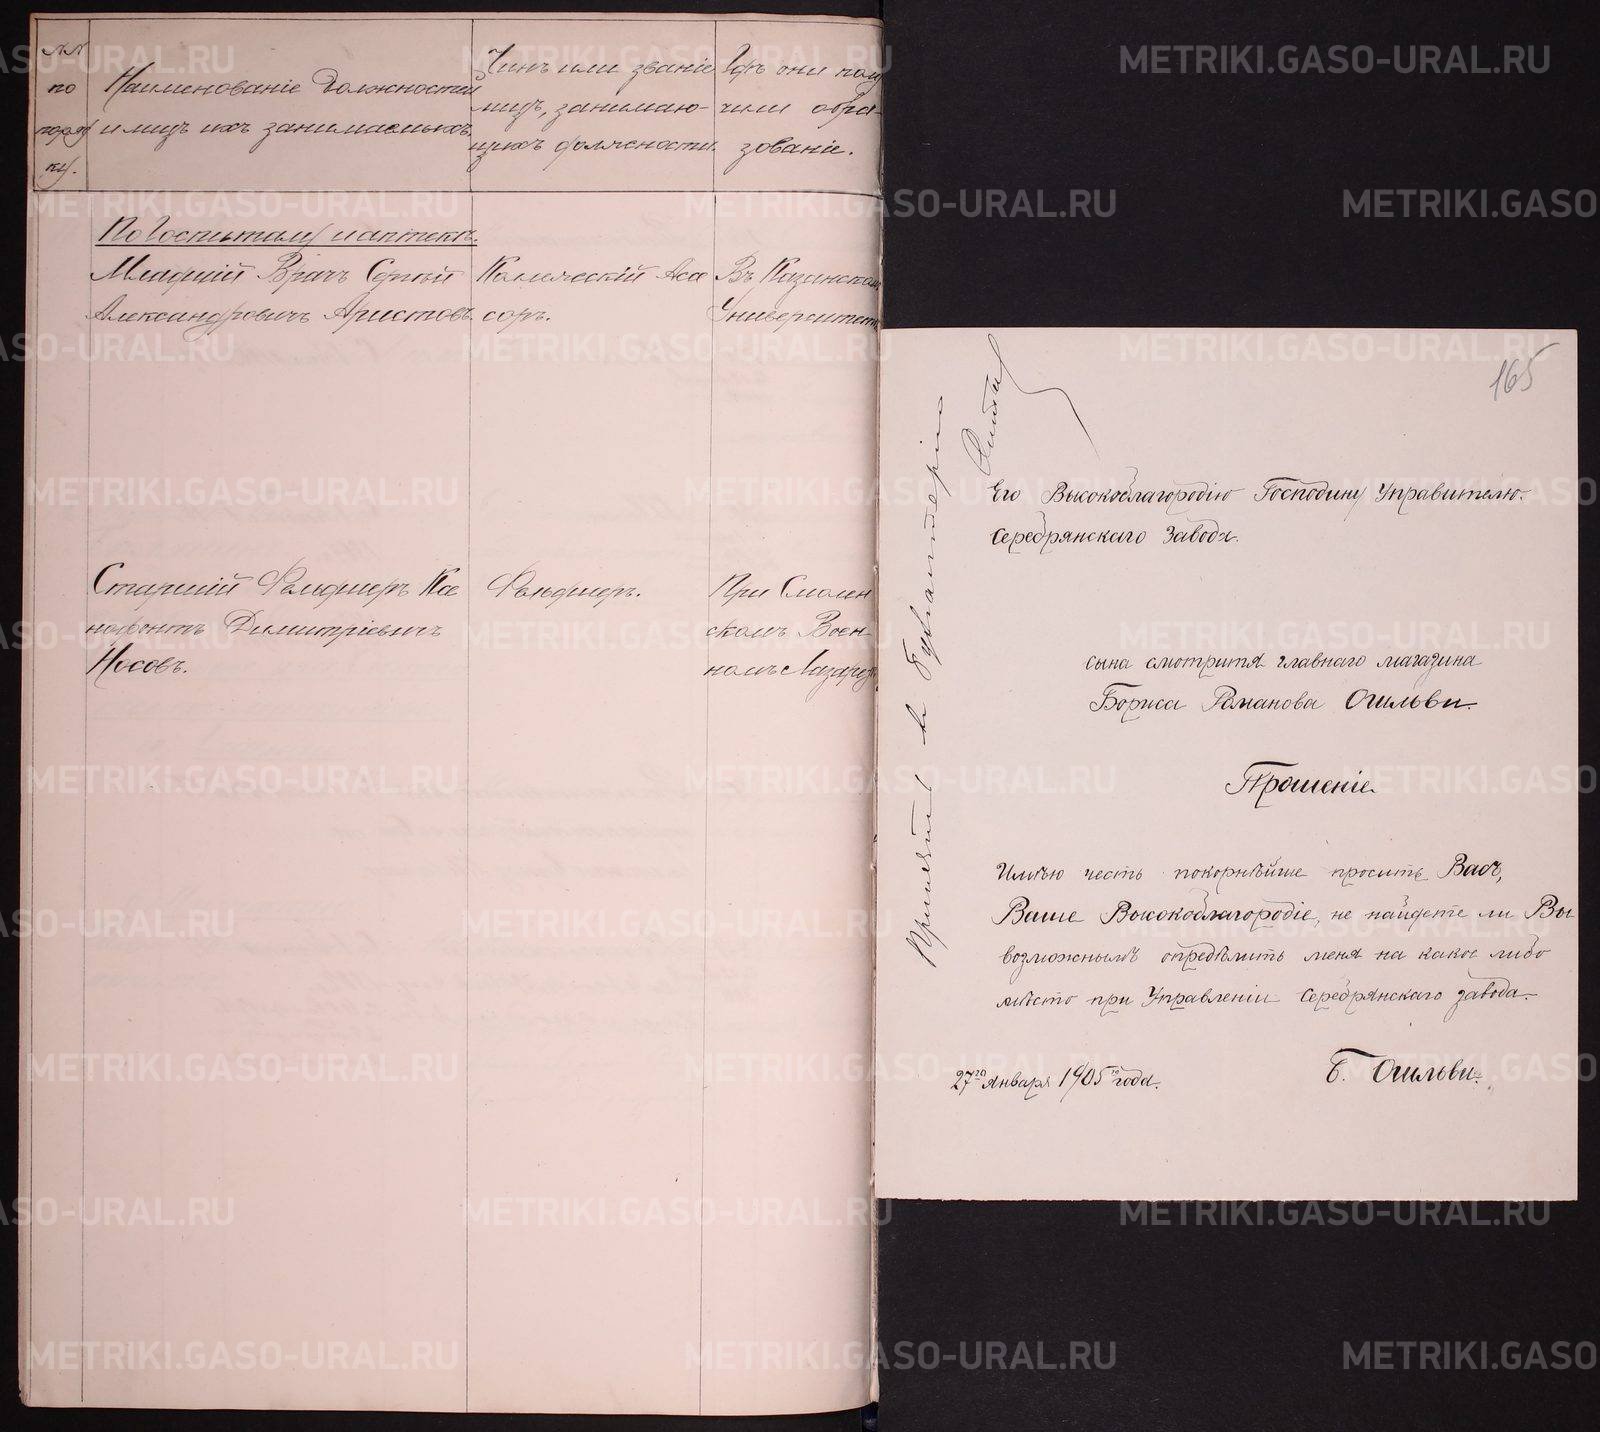 №№ по порядку.
Наименованіе Должностей
и лицъ ихъ занимаемыхъ.
Чинъ или званіе
лицъ, занимаю-
щихъ должности.
Гдѣ они полу
чили обра-
зованіе.
По Госпиталю и аптекѣ.
Младшій Врачъ Сергѣй
Александровичъ Аристовъ.
Коллежскій Асе
соръ.
Въ Казанском
Университетѣ
Старшій Фельдшеръ Ксе
нофонтъ Димитріевичъ
Носовъ.
Фельдшеръ.
При Смолен
скомъ Воен-
номъ Лазаретѣ.
165
Принятъ въ Бухгалтерію
Его Высокоблагородію Господину Управителю
Серебрянскаго Завода.
сына смотрителя главнаго магазина
Бориса Романова Огильви.
Прошеніе
Имѣю честь покорнѣйше просить Васъ,
Ваше Высокоблагородіе, не найдете ли Вы
возможнымъ опредѣлить меня на какое либо
мѣсто при Управленіи Серебрянскаго завода.
27го января 1905го года.
Б. Огильви.
METRIKI.GASO-URAL.RU